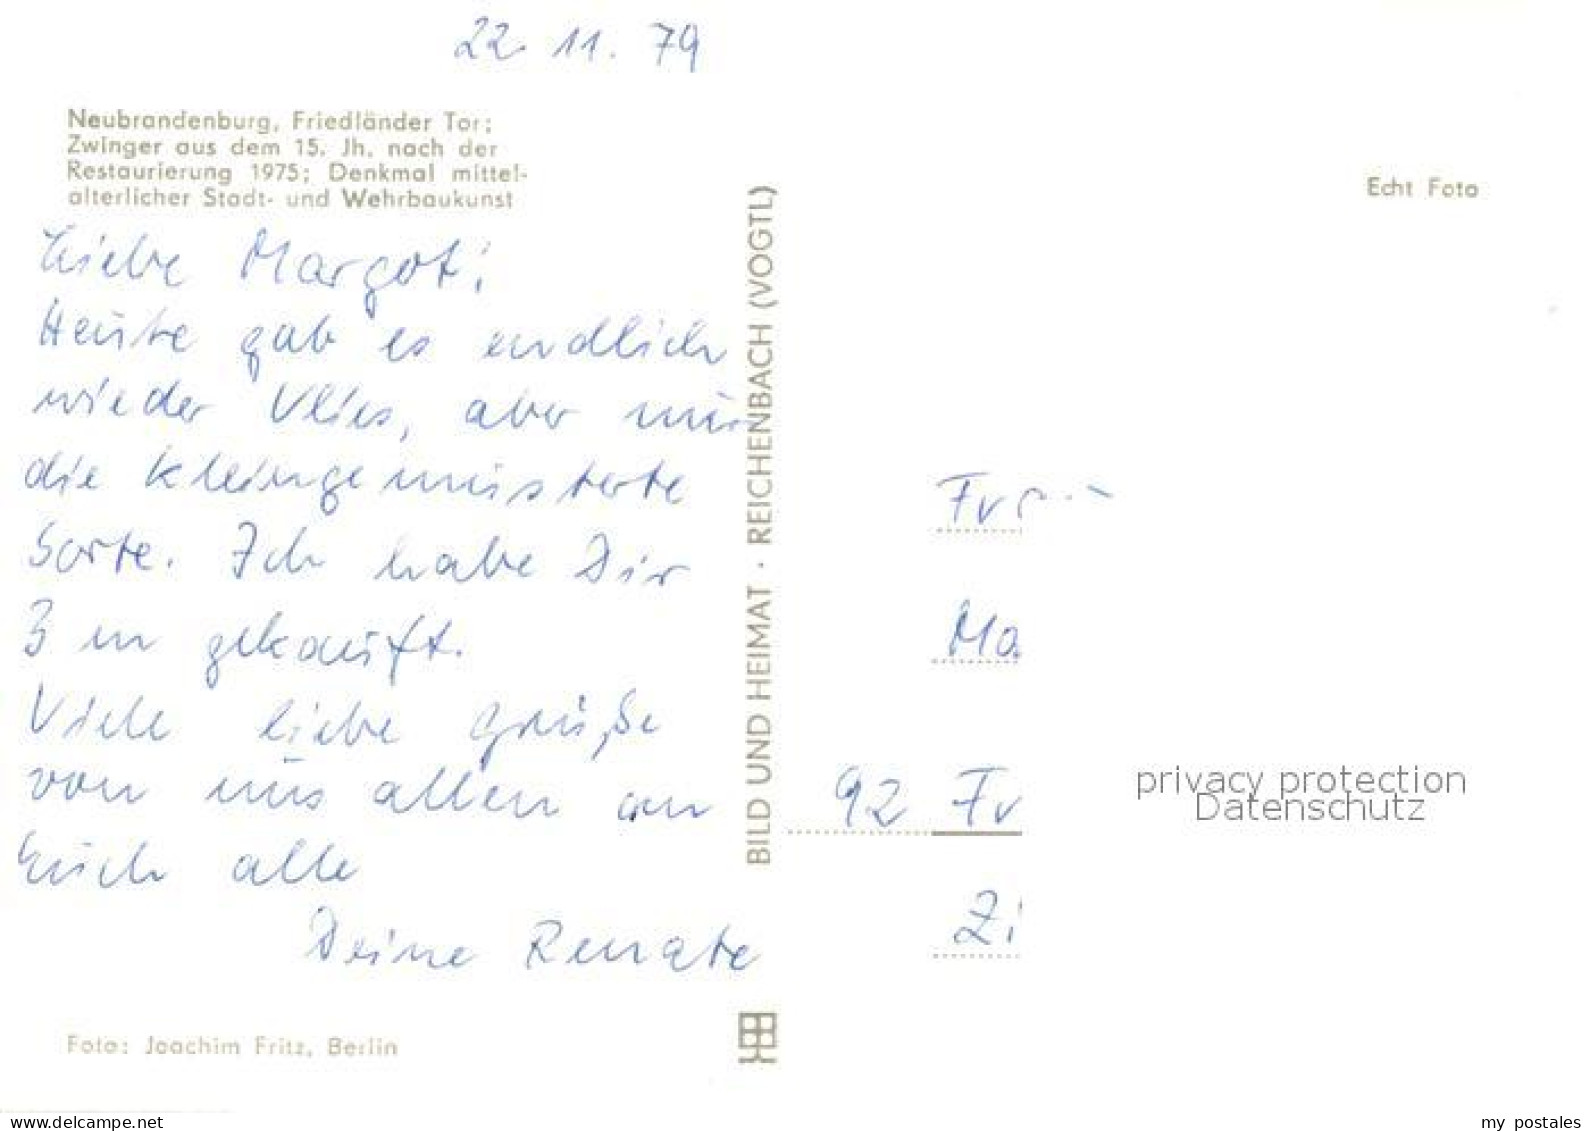 22. 11. 79
Neubrandenburg, Friedländer Tor;
Zwinger aus dem 15. Jh. nach der
Restaurierung 1975; Denkmal mittel-
alterlicher Stadt- und Wehrbaukunst
Echt Foto
Liebe Margot!
Heute gab es endlich
wieder Vlies, aber nur
die kleingemusterte
Sorte. Ich habe Dir
3 m gekauft.
Viele liebe Grüße
von uns allen an
Euch alle
Deine Renate
Foto: Joachim Fritz, Berlin
BILD UND HEIMAT · REICHENBACH (VOGTL)
Ma
92 Fr
Zi
privacy protection
Datenschutz
www.delcampe.net
my_postales